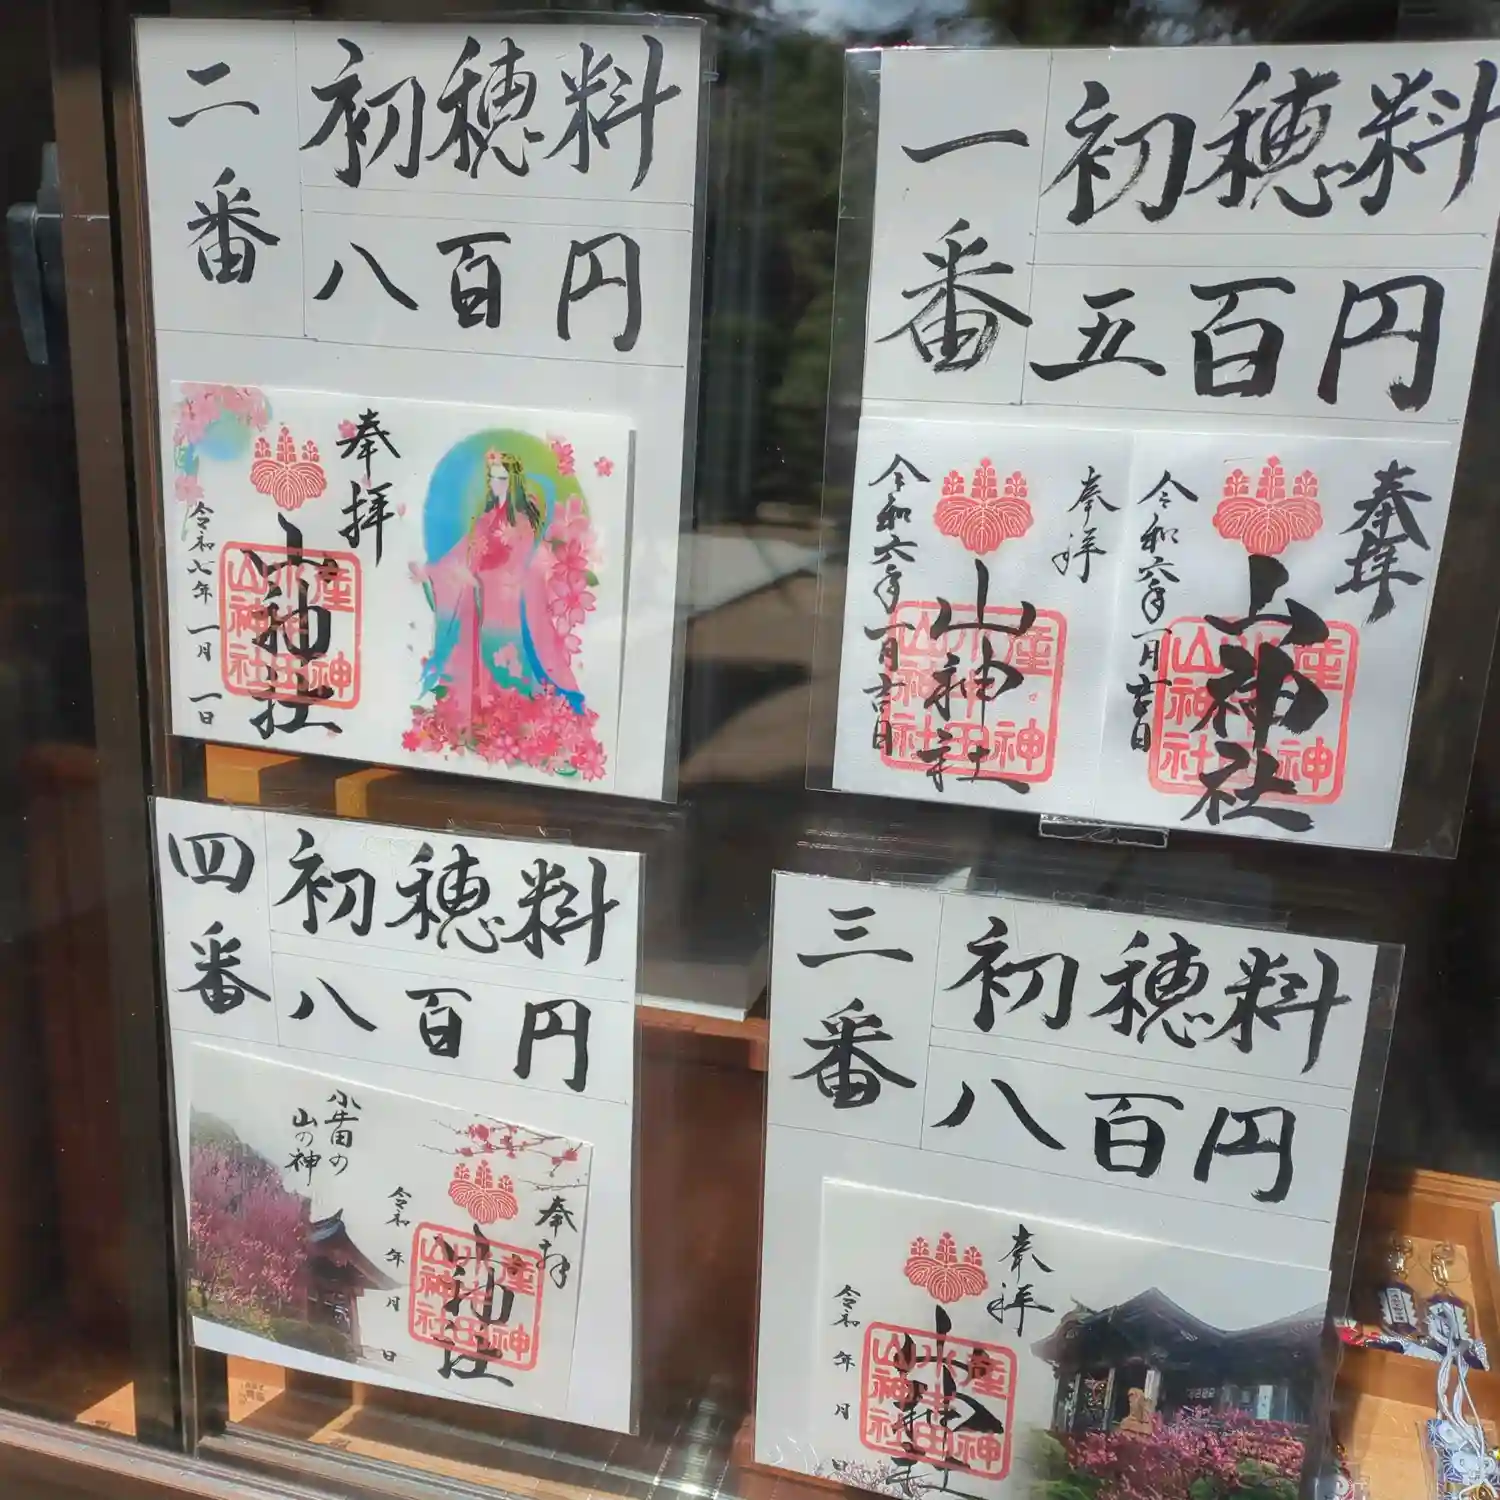 一番
初穂料
五百円
奉拝
山神社
令和六年一月吉日
奉拝
山神社
令和六年一月吉日
産神
小牛田
山神社
二番
初穂料
八百円
奉拝
山神社
令和七年一月一日
産神
小牛田
山神社
三番
初穂料
八百円
奉拝
山神社
令和 年 月 日
産神
小牛田
山神社
四番
初穂料
八百円
奉拝
山神社
令和 年 月 日
小牛田の
山の神
産神
小牛田
山神社